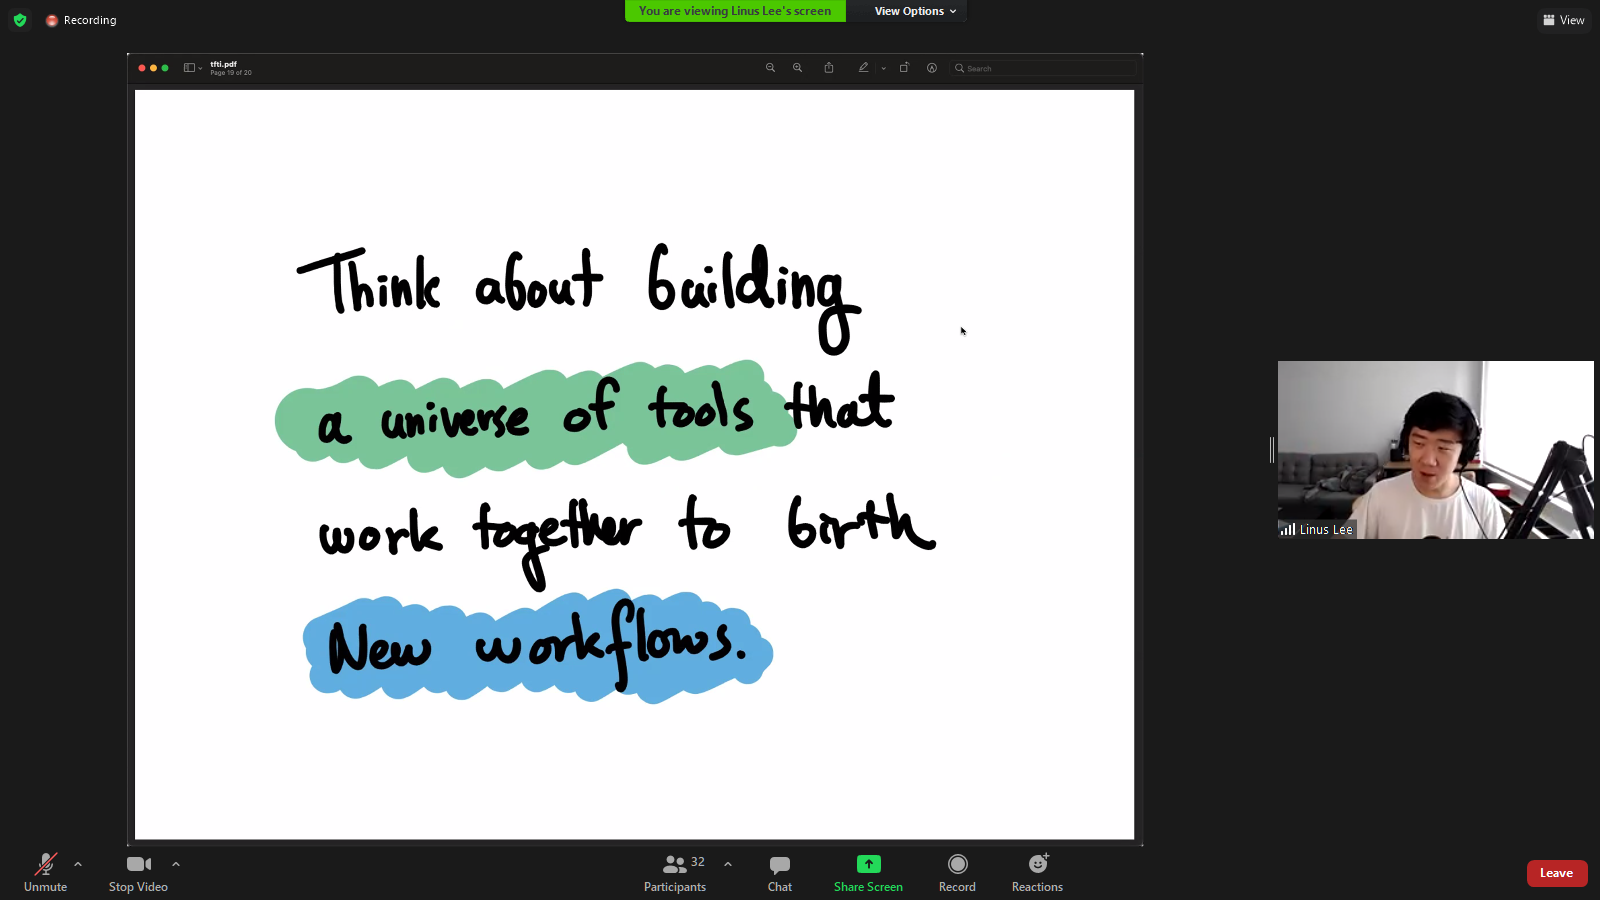 Recording
You are viewing Linus Lee's screen
View Options
View
tfti.pdf
Page 19 of 20
Search
Think about building
a universe of tools that
work together to birth
New workflows.
Linus Lee
Unmute
Stop Video
Participants
32
Chat
Share Screen
Record
Reactions
Leave